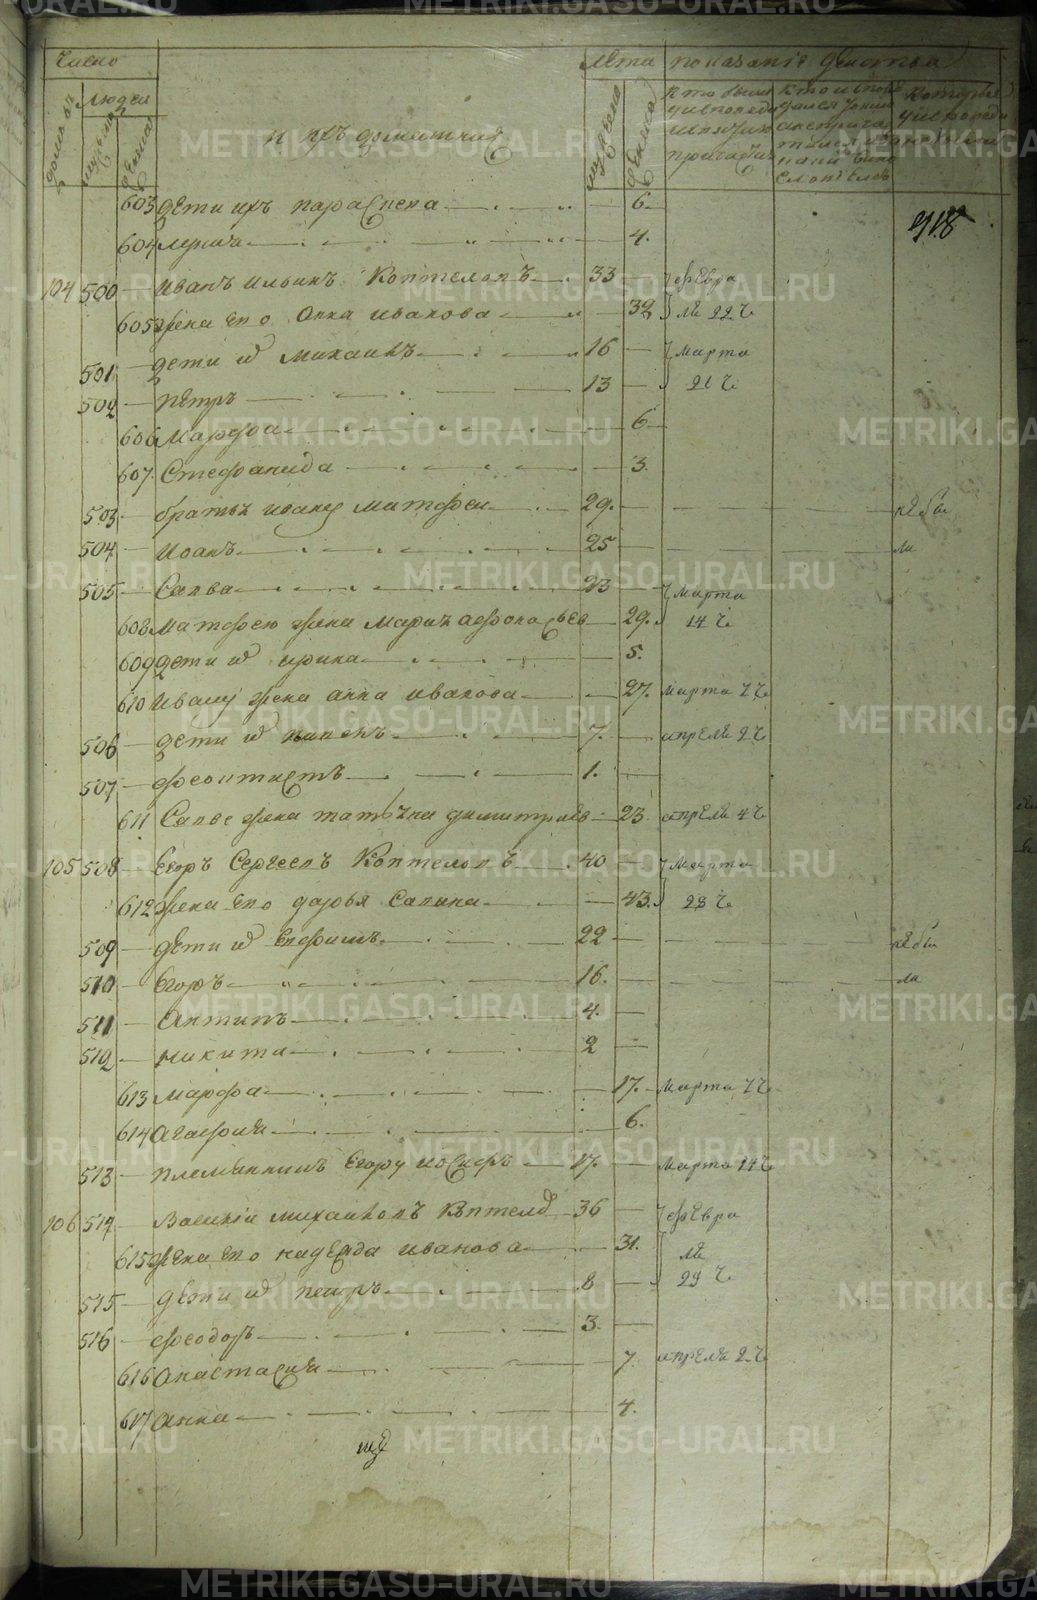 Число
Лѣта показаніе действа
домовъ
людей
мужеска
женска
и ихъ домашнія
мужеско
женска
кто были у исповеди и св. причастія
которые у исповеди не были
918
603 дети ихъ параскева 6.
604 4.
104 500 иванъ ильинъ Коптеловъ 33 февра
605 жена его анна иванова 32 ля 22 ч
501 дети и͠х михаилъ 16 марта
502 петръ 13 21 ч
606 марфа 6
607. Стефанида 3.
503 братья ивану матфеи 29. не бы
504 иоанъ 25 ли
505 Савва 23 марта
608 матфею жена марья афонасьев 29. 14 ч
609 дети и͠х ирина 5.
610 ивану жена анна иванова 27. марта 7 ч
506 дети и͠х 7. апреля 2 ч
507 феоктистъ 1.
611 Савве жена татьяна димитриев 23. апреля 4 ч
105 508 Егоръ Сергеевъ Коптеловъ 40 марта
612 жена его дарья Савина 43. 23 ч
509 дети и͠х Ефимъ 22 не бы
510 Егоръ 16. ли
511 Антипъ 4.
512 никита 2
613 марфа 17. марта 7 ч
614 агафия 6.
513 племянникъ Егору иосифъ 17. марта 14 ч
106 514 Василий михаиловъ Коптело͠в 36 февра
615 жена его надежда иванова 31. ля
515 дети и͠х петръ 8 29 ч
516 феодоръ 3.
616 анастасия 7 апреля 2 ч
617 анна 4.